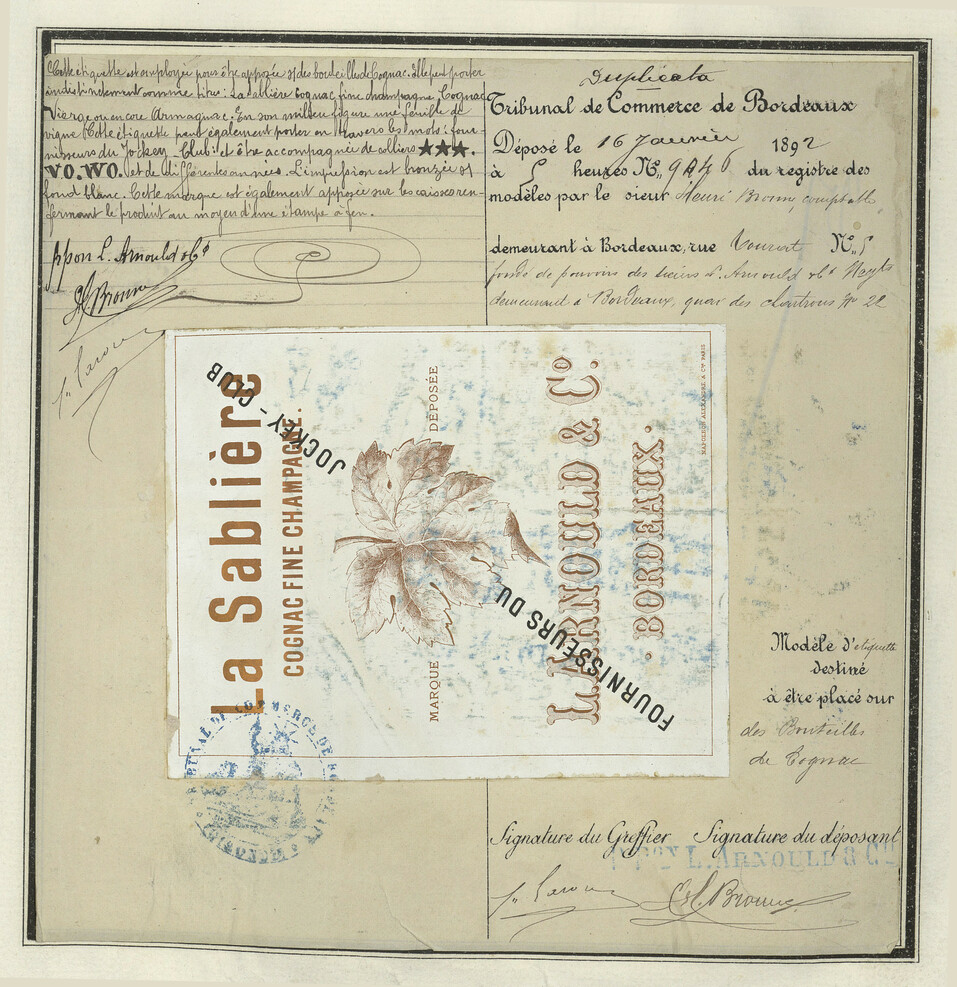 Cette étiquette est employée pour être apposée s/ des bouteilles de Cognac. Elle peut porter
indistinctement comme titre: La Sablière Cognac, fine champagne, Cognac
Vierge ou encore Armagnac. En son milieu figure une feuille de
vigne. Cette étiquette peut également porter en travers les mots: four-
nisseurs du Jockey-Club: et être accompagnée de colliers ★★★.
VO. WO. et de différentes années. L'impression est bronzée s/
fond blanc. Cette marque est également apposée sur les caisses ren-
fermant le produit au moyen d'une étampe à feu.
ppon L. Arnould & Cº
Duplicata
Tribunal de Commerce de Bordeaux
Déposé le 16 Janvier 1892
à 5 heures Nº 9446 du registre des
modèles par le sieur Henri Bronny, comptable,
demeurant à Bordeaux, rue Nº 5
fondé de pouvoirs des sieurs L. Arnould & Cº Negts
demeurant à Bordeaux, quai des chartrons Nº 22
La Sablière
COGNAC FINE CHAMPAGNE.
MARQUE DÉPOSÉE
FOURNISSEURS DU JOCKEY-CLUB
L. ARNOULD & Cº.
. BORDEAUX.
NAPOLEON ALEXANDRE & Cie PARIS
Modèle d'étiquette
destiné
à être placé sur
des Bouteilles
de Cognac
TRIBUNAL DE COMMERCE DE BORDEAUX
GIRONDE
Signature du Greffier Signature du déposant
Ppon L. ARNOULD & Cie